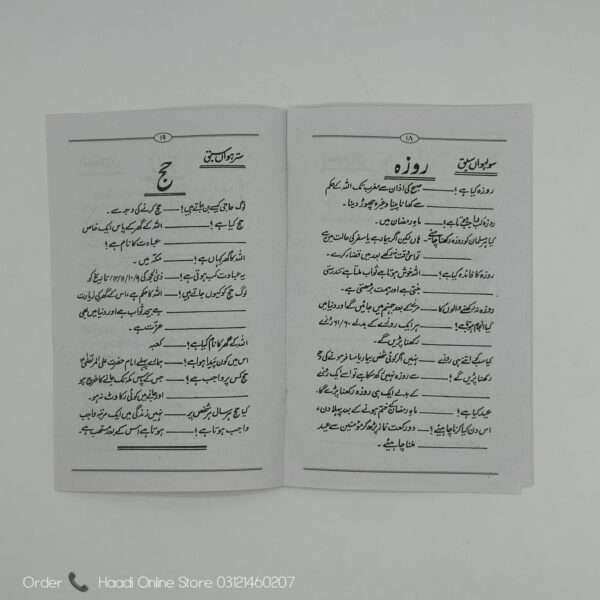 ۱۸
سولہواں سبق
روزہ
روزہ کیا ہے؟ — صبح کی اذان سے مغرب تک اللہ کے حکم
سے کھانا پینا وغیرہ چھوڑ دینا۔
روزہ کب — ماہِ رمضان میں۔
کیا ہر مسلمان کو روزہ رکھنا چاہئے — ہاں لیکن اگر بیمار ہے یا سفر کی حالت میں ہے
تو اس وقت نہ رکھے بعد میں قضا کرے۔
روزہ کا فائدہ کیا ہے؟ — اللہ خوش ہوتا ہے ثواب ملتا ہے تندرستی
بنتی ہے اور ہمت بڑھتی ہے۔
روزہ نہ رکھنے والوں کا — مرنے کے بعد جہنم میں جائیں گے اور دنیا میں
کیا انجام ہوتا ہے؟ — ہر ایک روزے کے بدلے ۶۰/۶۱ روزے
رکھنا پڑیں گے۔
کیا سب کے لئے اتنے ہی روزے — نہیں اگر کوئی شخص بیمار یا مسافر ہونے کی
رکھنا پڑیں گے؟ — سے روزہ نہیں رکھ سکا ہے تو اسے ایک روزے
کے بدلے ایک ہی روزہ رکھنا پڑے گا۔
عید کیا ہے؟ — ماہِ رمضان ختم ہونے کے بعد پہلا دن،
اس دن کیا کرنا چاہیئے؟ — دو رکعت نماز پڑھ کر مومنین سے عید
ملنا چاہیئے۔
۱۹
سترہواں سبق
حج
لوگ حاجی کیسے بن جاتے ہیں؟ — حج کرنے کی وجہ سے۔
حج کیا ہے؟ — اللہ کے گھر کے پاس ایک خاص
عبادت کا نام ہے؟
اللہ کا گھر کہاں ہے؟ — مکہ میں۔
یہ عبادت کب ہوتی ہے؟ — ذی الحجہ کی ۹/۱۰/۱۱/۱۲ تاریخ کو
لوگ حج کو کیوں جاتے ہیں؟ — اللہ کا حکم ہے، اس کے گھر کی زیارت
ہے، ثواب ہے اور دنیا میں بھی
عزت ہے۔
اللہ کے گھر کا نام کیا ہے؟ — کعبہ
اس میں کون پیدا ہوا ہے؟ — ہمارے پہلے امام حضرت علی المرتضیٰؑ
حج کس پر واجب ہے؟ — جس کے پاس مکہ تک جانے کا خرچ ہو
اور جانے میں کوئی رکاوٹ نہ ہو۔
کیا حج ہر سال ہر شخص پر — نہیں زندگی میں ایک مرتبہ واجب
واجب ہوتا ہے؟ — ہوتا ہے اس کے بعد مستحب ہے۔
Order Haadi Online Store 03121460207